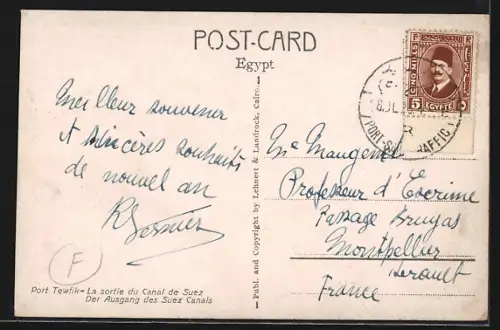 POST-CARD
Egypt
Meilleur souvenir
et sincères souhaits
de nouvel an
F
Port Tewfik - La sortie du Canal de Suez
Der Ausgang des Suez Canals
Publ. and Copyright by Lehnert & Landrock, Cairo.
CINQ MILLES
5
EGYPTE
PORT- TRAFFIC
Professeur d'Escrime
Passage Bruyas
Montpellier
Herault
France